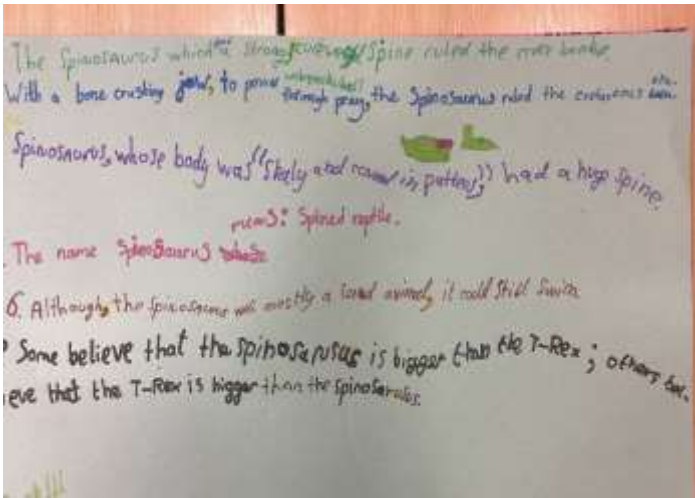 The Spinosaurus which had strong curved Spine ruled the river banks.
With a bone crushing jaw, to power through prey, the Spinosaurus ruled the cretaceous
era.
Spinosaurus, whose body was "Skaly and round in patterns," had a huge spine.
means: Spined reptile.
The name Spinosaurus
6. Although, the Spinosaurus was mostly a land animal, it could still Swim
Some believe that the spinosarusus is bigger than the T-Rex; others bel-
ieve that the T-Rex is bigger than the spinosarulus.